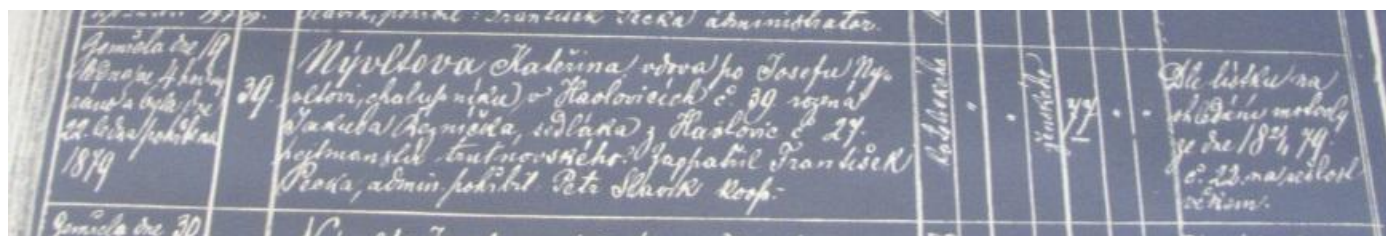 Slavík, pohřbil: František Pecka administrator.
Zemřela dne 19
ledna ve 4 hod.
ráno a byla dne
22. ledna pohřbena
1879
39.
Nývltova Kateřina, vdova po Josefu Ný-
vltovi, chalupníku v Havlovicích č. 39. rozená
Jakuba Řezníčka, sedláka z Havlovic č. 27.
hejtmanství trutnovského. Zaopatřil František
Pecka, admin. pohřbil Petr Slavík koop.
katolického
"
"
ženského
77
"
"
Dle lístku na
ohledání mrtvoly
ze dne 79.
č. 22. na sešlost
věkem.
Zemřela dne 30